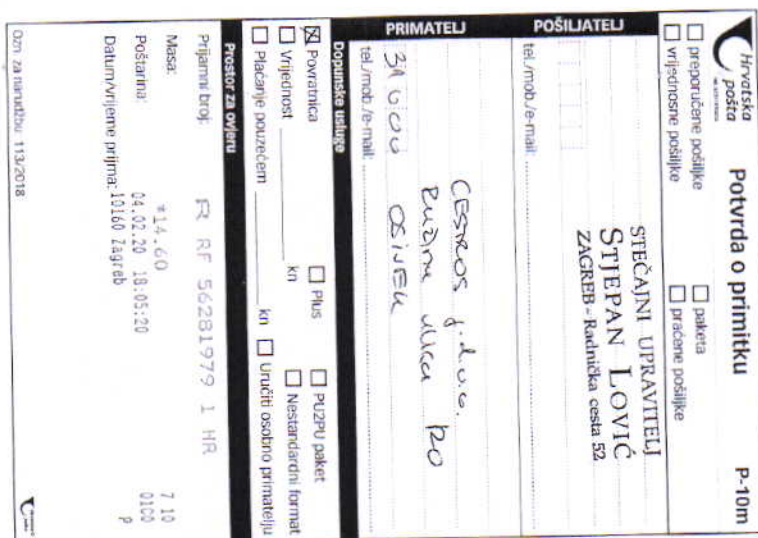 Hrvatska pošta
Potvrda o primitku
P-10m
☐ preporučene pošiljke ☐ paketa
☐ vrijednosne pošiljke ☐ praćene pošiljke
POŠILJATELJ
STEČAJNI UPRAVITELJ
STJEPAN LOVIĆ
ZAGREB - Radnička cesta 52
tel./mob./e-mail:
PRIMATELJ
CESTROS j.d.o.o.
Ružina ulica 120
31000 OSIJEK
tel./mob./e-mail:
Dopunske usluge
☒ Povratnica ☐ Plus ☐ PU2PU paket
☐ Vrijednost kn ☐ Nestandardni format
☐ Plaćanje pouzećem kn ☐ Uručiti osobno primatelju
Prostor za ovjeru
Prijamni broj: R RF 56281979 1 HR
Masa: 7 10
Poštarina: *14.60 0100
04.02.20 18:05:20 P
Datum/vrijeme prijma: 10160 Zagreb
Ozn. za narudžbu: 113/2018